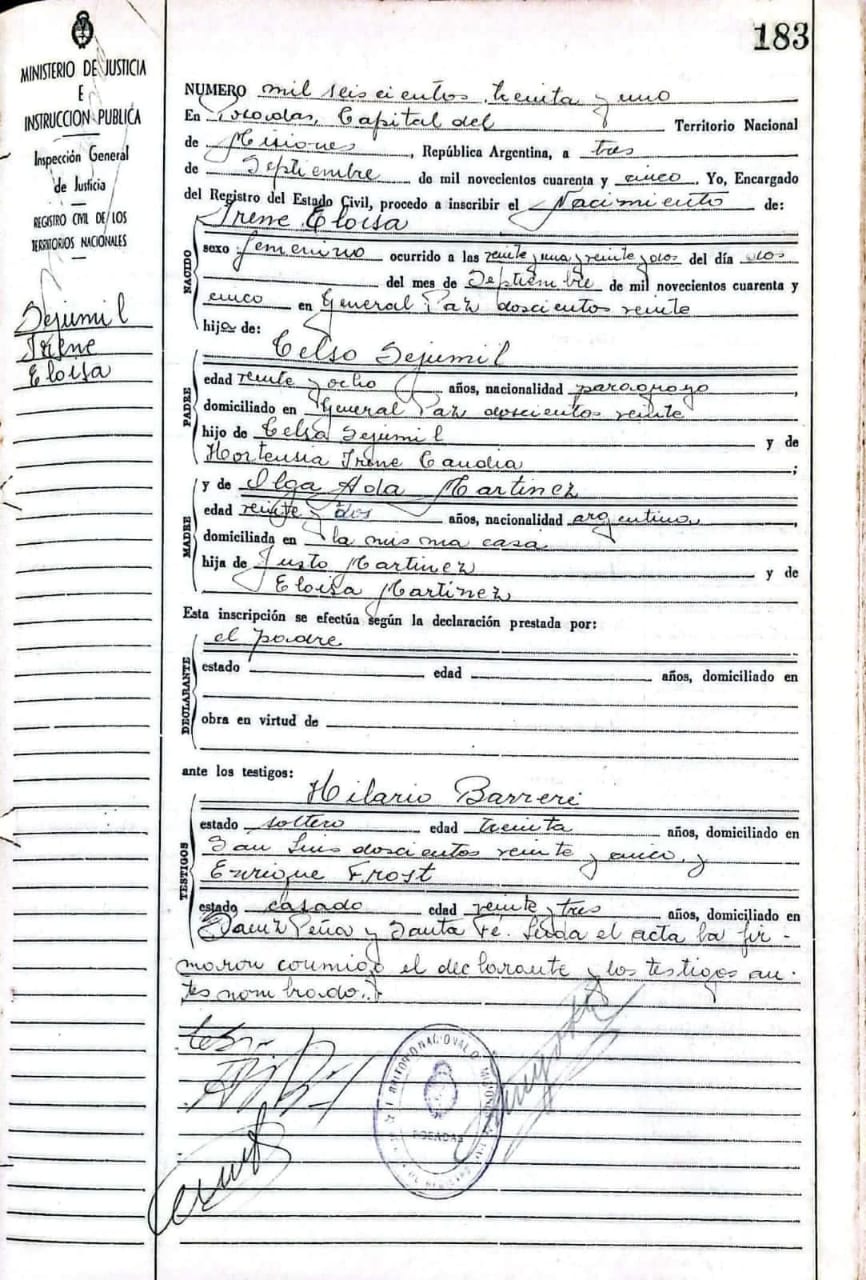 183
MINISTERIO DE JUSTICIA
E
INSTRUCCION PUBLICA
Inspección General
de Justicia
REGISTRO CIVIL DE LOS
TERRITORIOS NACIONALES
Sejumil
Irene
Eloisa
NUMERO mil seiscientos treinta y uno
En Posadas, Capital del Territorio Nacional
de Misiones, República Argentina, a tres
de Septiembre de mil novecientos cuarenta y cinco. Yo, Encargado
del Registro del Estado Civil, procedo a inscribir el Nacimiento de:
NACIDO
Irene Eloisa
sexo femenino ocurrido a las veinte y una y veinte y dos del día dos
del mes de Septiembre de mil novecientos cuarenta y
cinco en General Paz doscientos veinte
hija de:
PADRE
Celso Sejumil
edad veinte y ocho años, nacionalidad paraguayo,
domiciliado en General Paz doscientos veinte
hijo de Celsa Sejumil y de
Hortensia Irene Candia;
MADRE
y de Olga Ada Martinez
edad veinte y dos años, nacionalidad argentina,
domiciliada en la misma casa
hija de Justo Martinez y de
Eloisa Martinez
Esta inscripción se efectúa según la declaración prestada por:
DECLARANTE
el padre
estado edad años, domiciliado en
obra en virtud de
ante los testigos:
TESTIGOS
Hilario Barreri
estado soltero edad treinta años, domiciliado en
San Luis doscientos veinte y cinco, y
Enrique Frost
estado casado edad veinte y tres años, domiciliado en
Saenz Peña y Santa Fé. Leida el acta la fir-
maron conmigo el declarante y los testigos an-
tes nombrado.
TERRITORIO NACIONAL D MISIONES
POSADAS